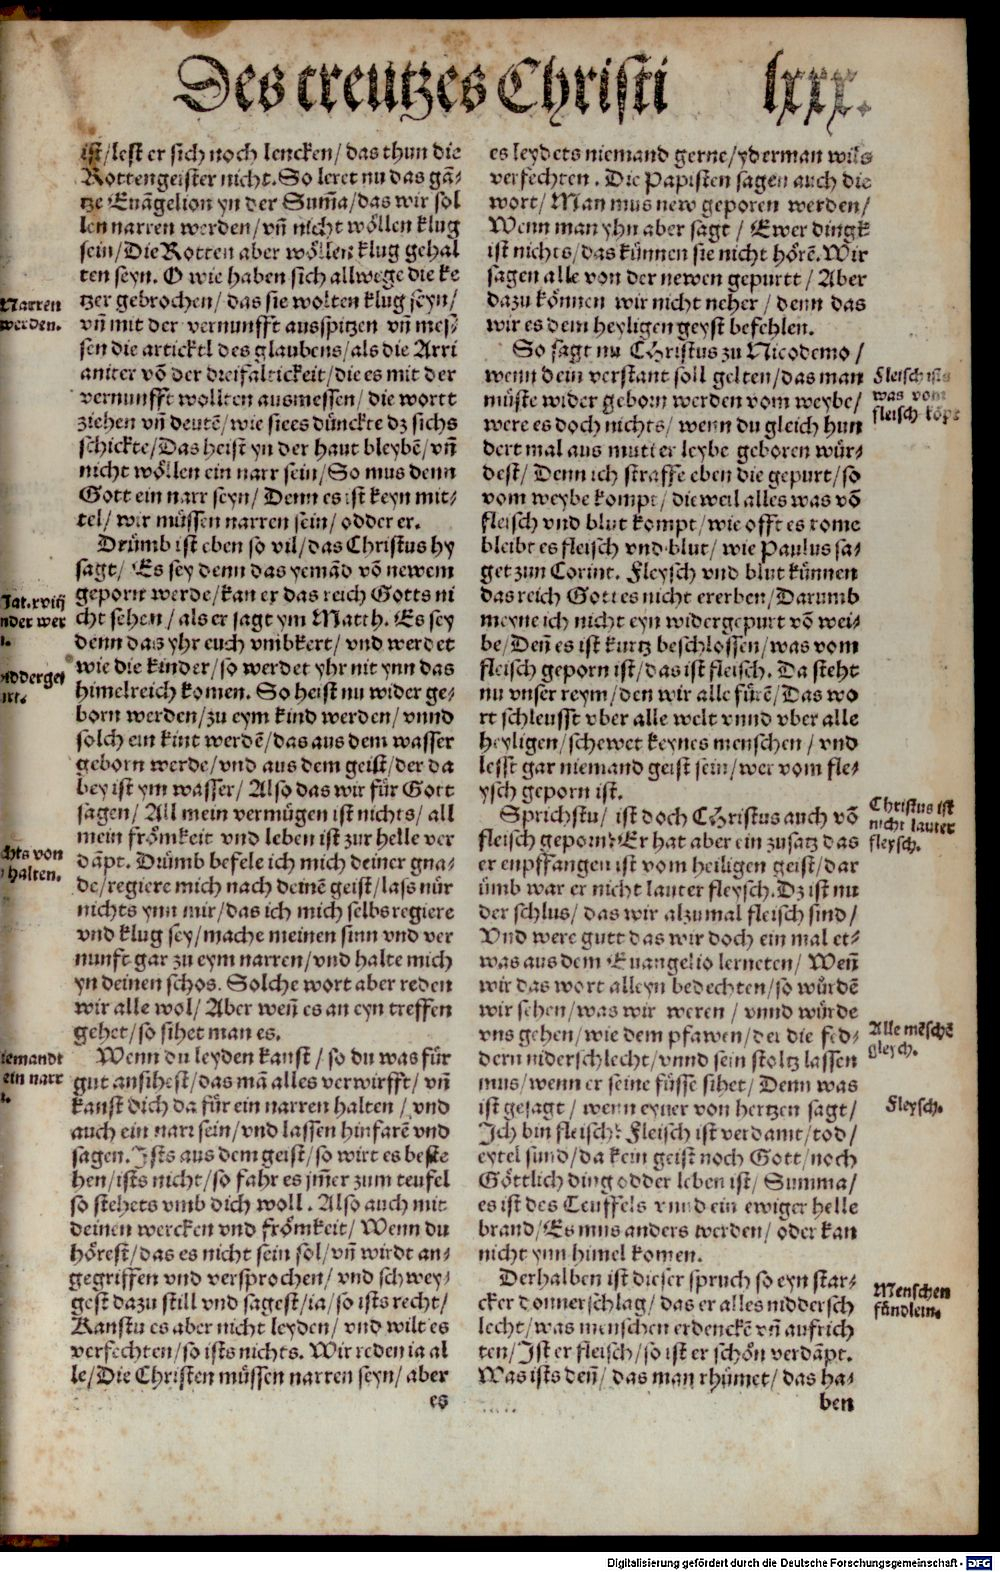 Des creutzes Christi lxxx.
ist/lest er sich noch lencken/das thun die
Rottengeister nicht. So leret nu das gā⸗
tze Euāgelion yn der Sum̃a/das wir sol
len narren werden/vñ nicht wöllen klug
sein/Die Rotten aber wöllen klug gehal
ten seyn. O wie haben sich allwege die ke
tzer gebrochen/das sie wolten klug seyn/
vñ mit der vernunfft ausspitzen vñ mes⸗
sen die artickel des glaubens/als die Arri
aniter vō der dreifaltickeit/die es mit der
vernunfft wollten ausmessen/die wortt
ziehen vñ deutē/wie sie es dünckte dz sichs
schickte/Das heist yn der haut bleybē/vñ
nicht wöllen ein narr sein/So mus denn
Gott ein narr seyn/Denn es ist keyn mit⸗
tel/wir müssen narren sein/odder er.
Drümb ist eben so vil/das Christus hy
sagt/Es sey denn das yemād vō newem
geporn werde/kan er das reich Gotts ni
cht sehen/als er sagt ym Matth. Es sey
denn das yhr euch vmbkert/vnd werdet
wie die kinder/so werdet yhr nit ynn das
himelreich komen. So heist nu wider ge⸗
born werden/zu eym kind werden/vnnd
solch ein kint werdē/das aus dem wasser
geborn werde/vnd aus dem geist/der da
bey ist ym wasser/Also das wir für Gott
sagen/All mein vermügen ist nichts/all
mein frömkeit vnd leben ist zur helle ver
dāpt. Drümb befele ich mich deiner gna⸗
de/regiere mich nach deinē geist/lass nür
nichts ynn mir/das ich mich selbs regiere
vnd klug sey/mache meinen sinn vnd ver
nunft gar zu eym narren/vnd halte mich
yn deinen schos. Solche wort aber reden
wir alle wol/Aber weñ es an eyn treffen
gehet/so sihet man es.
Wenn du leyden kanst/so du was für
gut ansihest/das mā alles verwirfft/vñ
kanst dich da für ein narren halten/vnd
auch ein narr sein/vnd lassen hinfarē vnd
sagen. Ists aus dem geist/so wirt es beste
hen/ists nicht/so fahr es im̃er zum teufel
so stehets vmb dich woll. Also auch mit
deinen wercken vnd frömkeit/Wenn du
hörest/das es nicht sein sol/vñ wirdt an⸗
gegriffen vnd versprochen/vnd schwey⸗
gest dazu still vnd sagest/ia/so ists recht/
Kanstu es aber nicht leyden/vnd wilt es
verfechten/so ists nichts. Wir reden ia al
le/Die Christen müssen narren seyn/aber
es
Narren
werden.
Mat.xviij
nder wer
Widderge
urt.
chts von
halten.
iemandt
ein narr
es leydets niemand gerne/yderman wils
verfechten. Die Papisten sagen auch die
wort/Man mus new geporen werden/
Wenn man yhn aber sagt/Ewer dingk
ist nichts/das künnen sie nicht hörē. Wir
sagen alle von der newen gepurtt/Aber
dazu können wir nicht neher/denn das
wir es dem heyligen geyst befehlen.
So sagt nu CHristus zu Nicodemo/
wenn dein verstant soll gelten/das man
müste wider geborn werden vom weybe/
were es doch nichts/wenn du gleich hun
dert mal aus mutter leybe geboren wür⸗
dest/Denn ich straffe eben die gepurt/so
vom weybe kompt/die weil alles was vō
fleisch vnd blut kompt/wie offt es kome
bleibt es fleisch vnd blut/wie Paulus sa⸗
get zun Corint. Fleysch vnd blut künnen
das reich Gottes nicht ererben/Darumb
meyne ich nicht eyn widergepurt vō wei⸗
be/Deñ es ist kurtz beschlossen/was vom
fleisch geporn ist/das ist fleisch. Da steht
nu vnser reym/den wir alle fürē/Das wo
rt schleusst vber alle welt vnnd vber alle
heyligen/schewet keynes menschen/vnd
lesst gar niemand geist sein/wer vom fle⸗
ysch geporn ist.
Sprichstu/ist doch CHristus auch vō
fleisch geporn? Er hat aber ein zusatz das
er enpffangen ist vom heiligen geist/dar
ümb war er nicht lauter fleysch. Dz ist nu
der schlus/das wir alzumal fleisch sind/
Vnd were gutt das wir doch ein mal et⸗
was aus dem Euangelio lerneten/Weñ
wir das wort alleyn bedechten/so würdē
wir sehen/was wir weren/vnnd würde
vns gehen/wie dem pfawen/der die fed⸗
dern niderschlecht/vnnd sein stoltz lassen
mus/wenn er seine füsse sihet/Denn was
ist gesagt/wenn eyner von hertzen sagt/
Ich bin fleisch? Fleisch ist verdamt/tod/
eytel sund/da kein geist noch Gott/noch
Göttlich ding odder leben ist/Summa/
es ist des Teuffels vnnd ein ewiger helle
brand/Es mus anders werden/oder kan
nicht ynn himel komen.
Derhalben ist dieser spruch so eyn star⸗
cker donnerschlag/das er alles niddersch
lecht/was menschen erdenckē vñ aufrich
ten/Ist er fleisch/so ist er schön verdāpt.
Was ists deñ/das man rhümet/das ha⸗
ben
Fleisch ists
was vom
fleisch kōpt
Christus ist
nicht lauter
fleysch.
Alle mēschē
gleych.
Fleysch.
Menschen
fündlein.
Digitalisierung gefördert durch die Deutsche Forschungsgemeinschaft - DFG